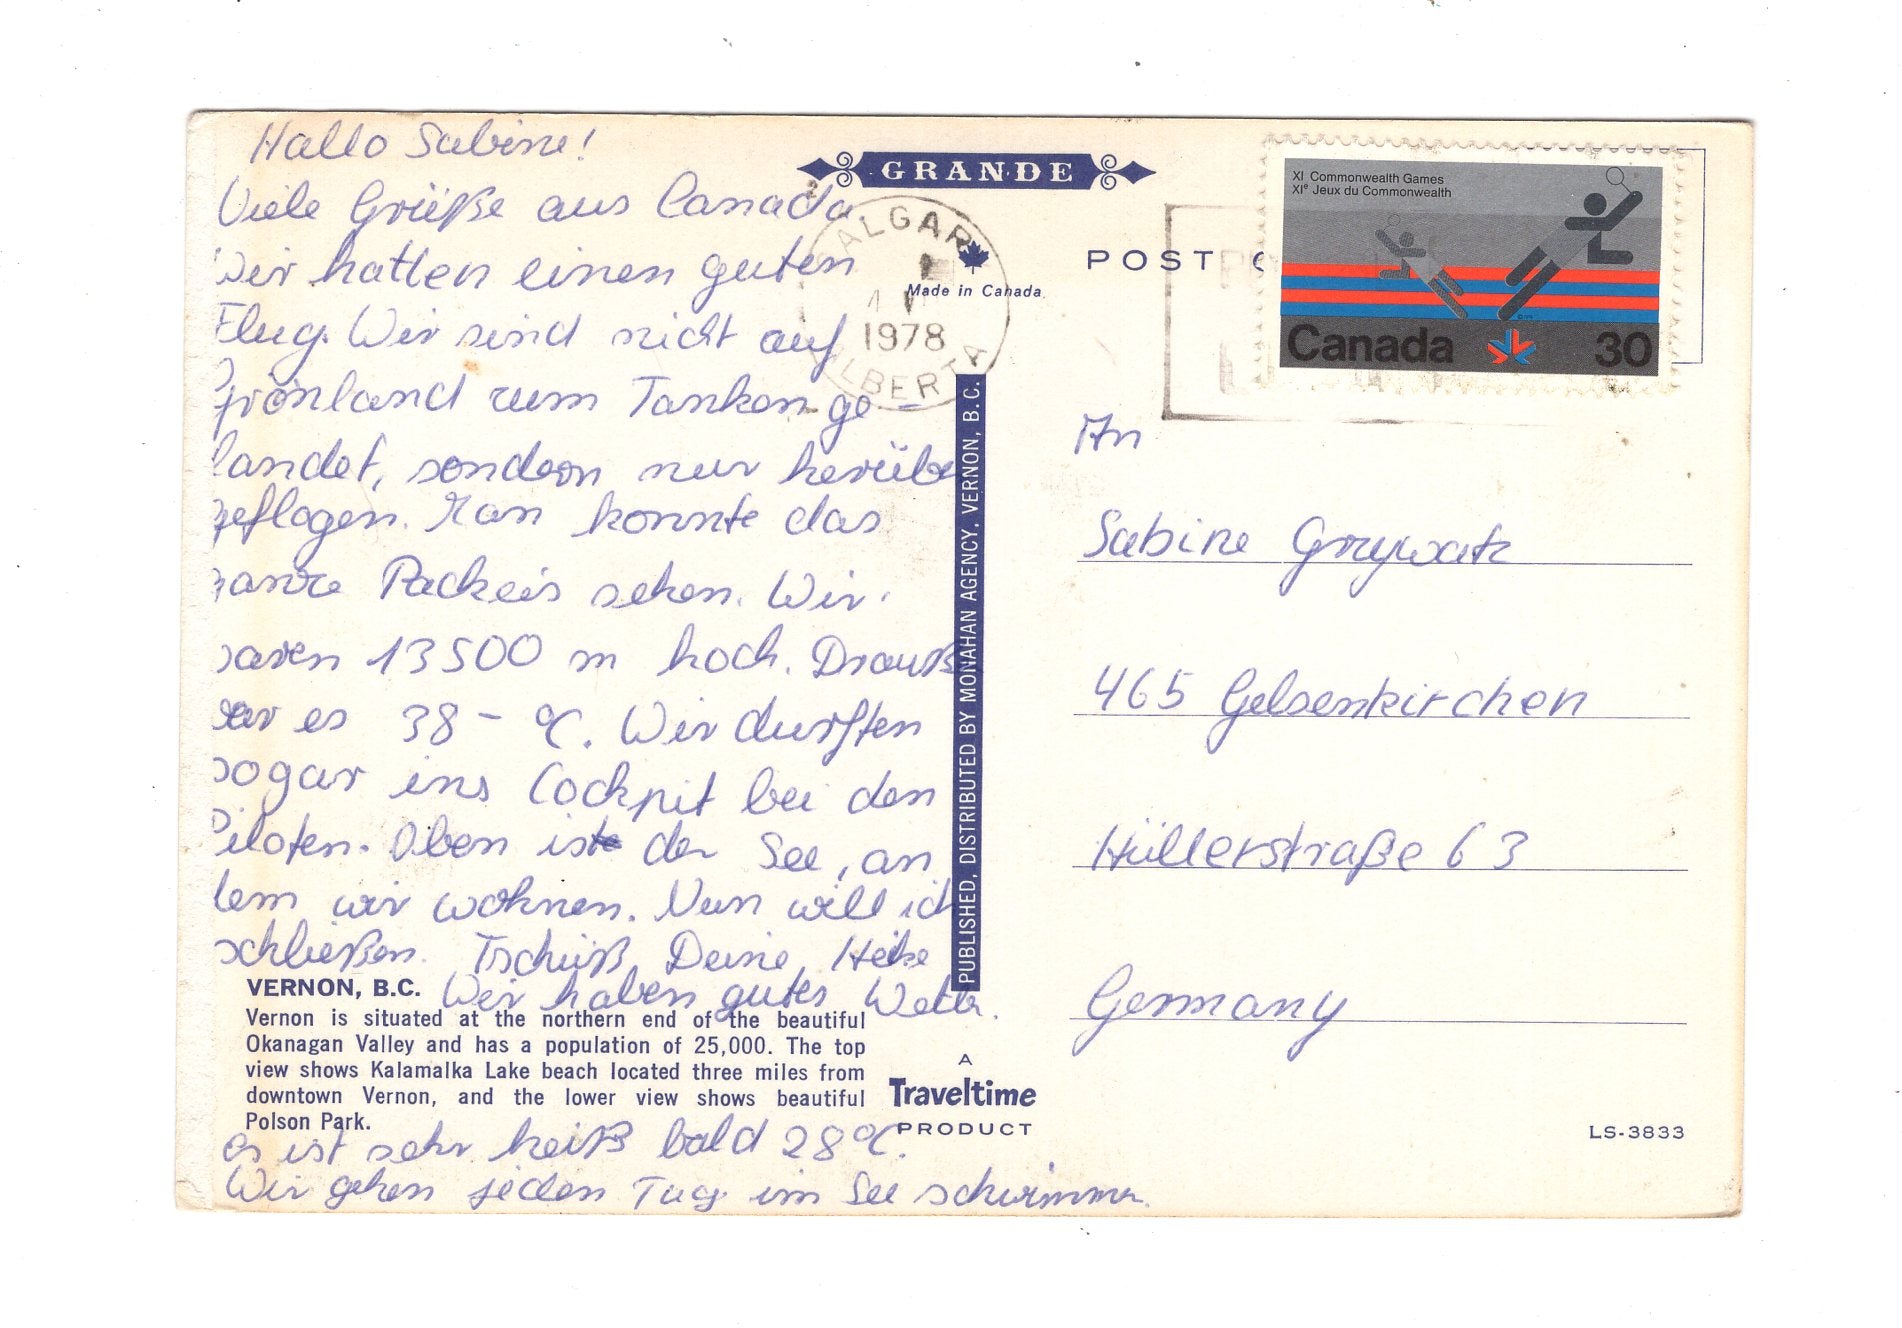 Hallo Sabine!
Viele Grüße aus Canada
Wir hatten einen guten
Flug. Wir sind nicht auf
Grönland zum Tanken ge-
landet, sondern nur herüber
geflogen. Man konnte das
ganze Packeis sehen. Wir
waren 13500 m hoch. Drauß
war es 38 - °C. Wir durften
sogar ins Cockpit bei den
Piloten. Oben ist der See, an
dem wir wohnen. Nun will ich
schließen. Tschüß Deine Heike
Wir haben gutes Wetter.
es ist sehr heiß bald 28°C.
Wir gehen jeden Tag im See schwimmen.
VERNON, B.C.
Vernon is situated at the northern end of the beautiful
Okanagan Valley and has a population of 25,000. The top
view shows Kalamalka Lake beach located three miles from
downtown Vernon, and the lower view shows beautiful
Polson Park.
GRANDE
Made in Canada
CALGARY
1978
ALBERTA
PUBLISHED, DISTRIBUTED BY MONAHAN AGENCY, VERNON, B.C.
A
Traveltime
PRODUCT
POST C
XI Commonwealth Games
XIe Jeux du Commonwealth
Canada 30
An
Sabine
465 Gelsenkirchen
Hüllerstraße 63
Germany
LS-3833